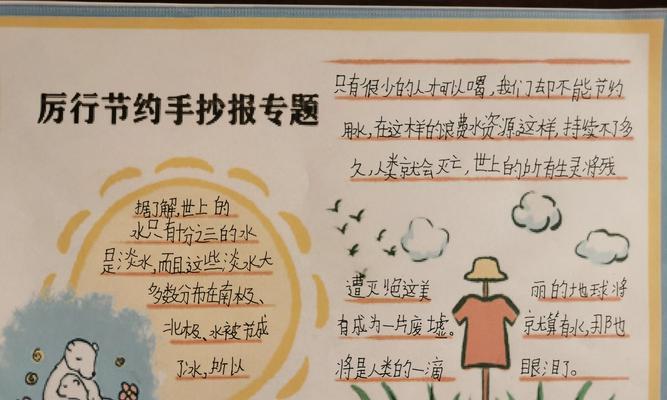 厉行节约手抄报专题
据了解,世上的
水只有十分之三的水
是淡水,而且这些淡水大
多数分布在南极、
北极、水被范成
了冰,所以
只有很少的人才可以喝,我们却不能节约
用水,在这样的浪费水资源这样,持续不了多
久,人类就会灭亡,世上的所有生灵将残
遭灭绝这美 丽的地球将
有成为一片废墟。 京尤算有水,那也
将是人类的一滴 眼泪了。